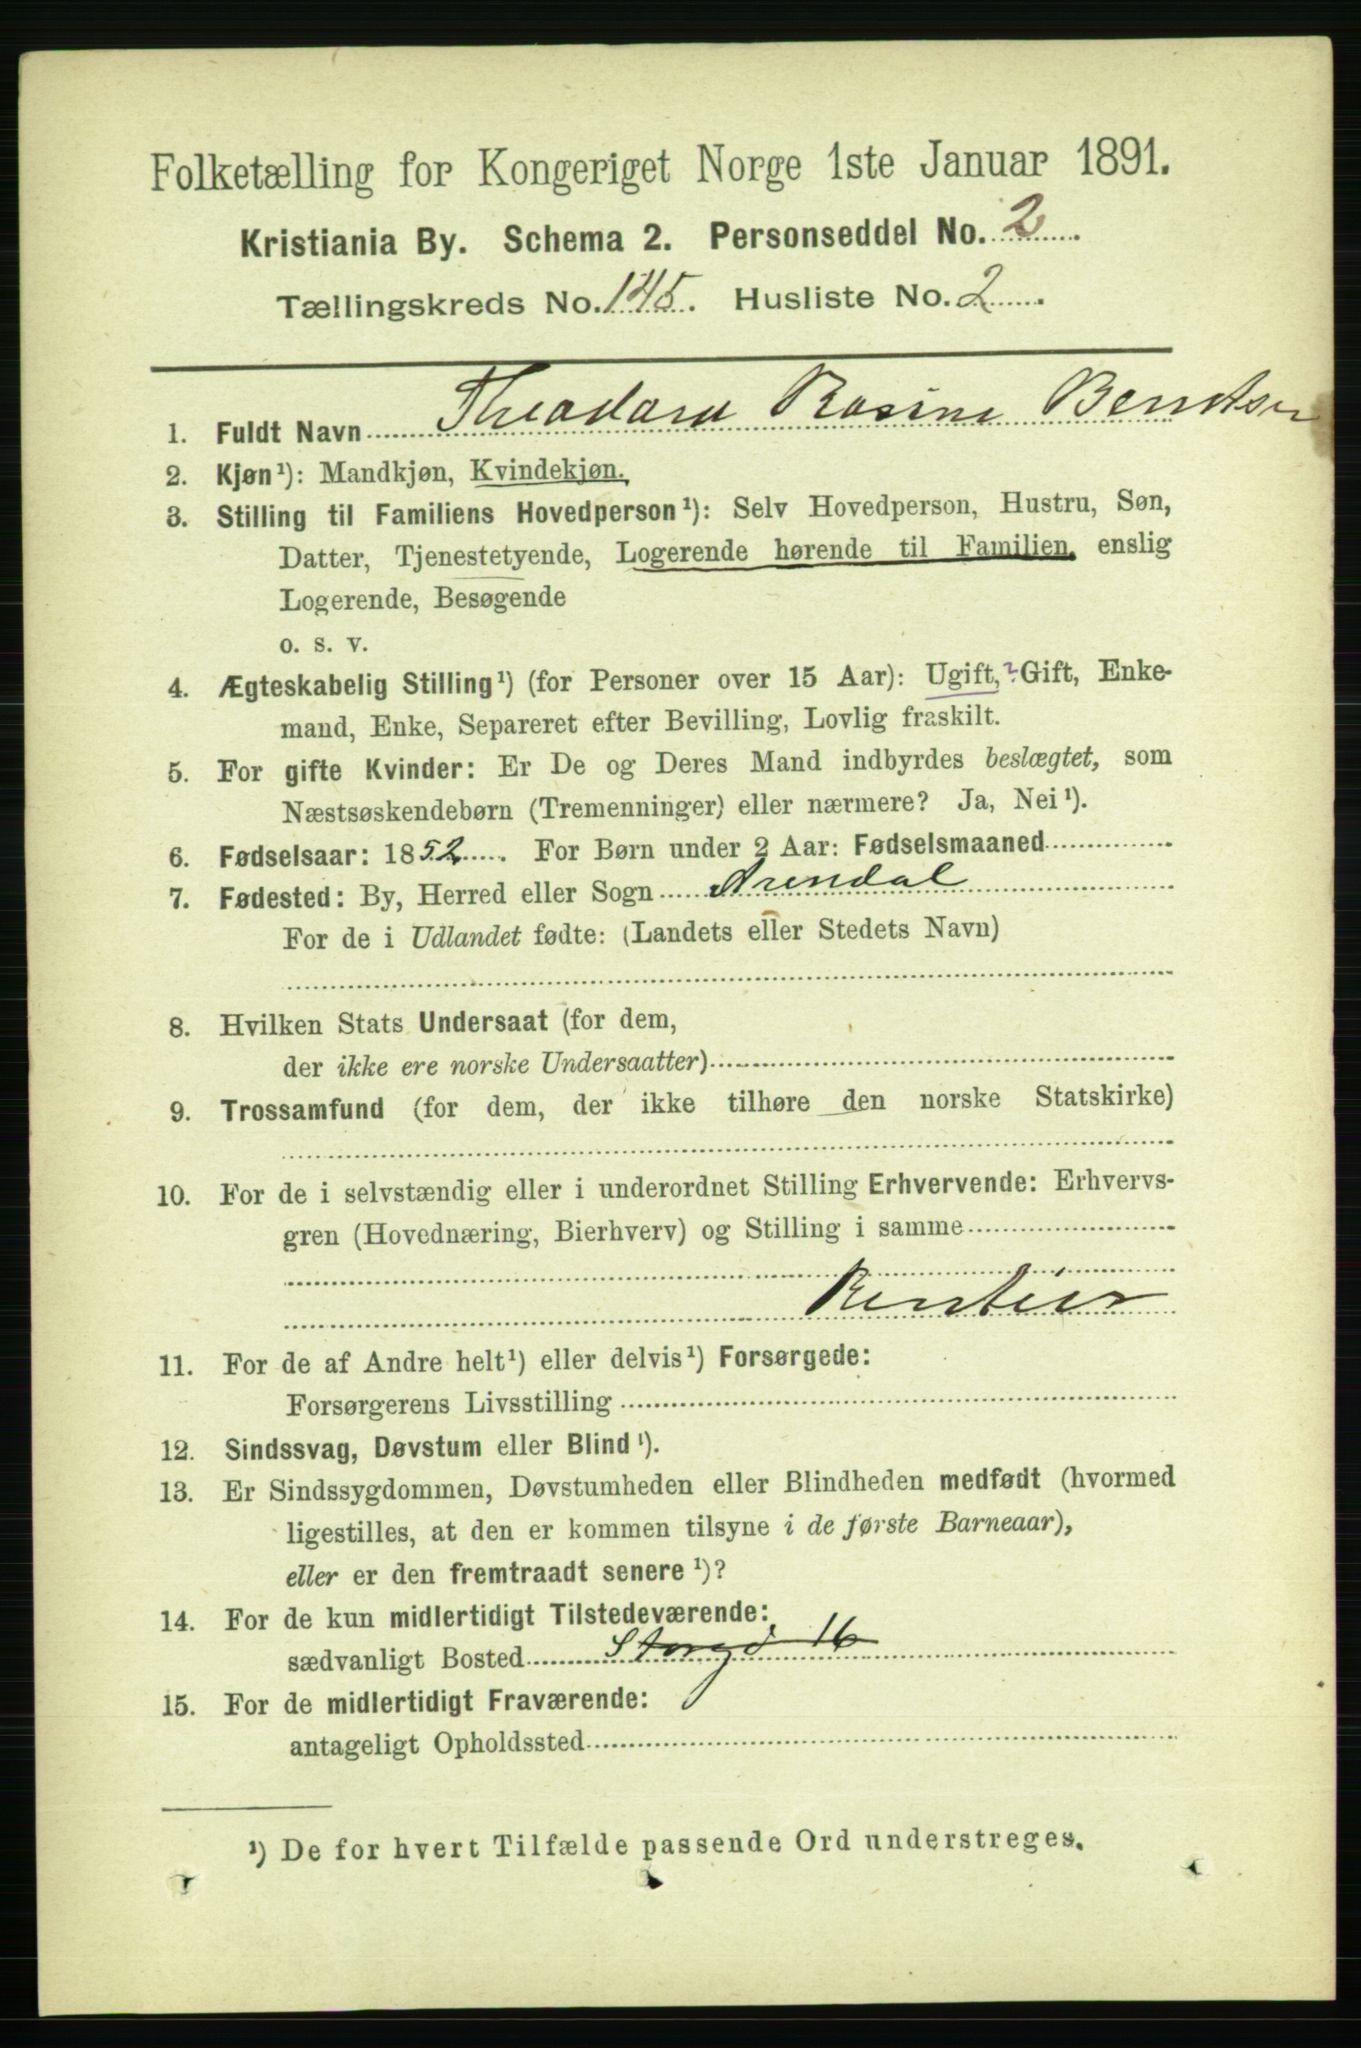 Folketælling for Kongeriget Norge 1ste Januar 1891.
Kristiania By. Schema 2. Personseddel No. 2
Tællingskreds No. 145. Husliste No. 2
1. Fuldt Navn Theodora Rosine Berntsen
2. Kjøn¹): Mandkjøn, Kvindekjøn.
3. Stilling til Familiens Hovedperson¹): Selv Hovedperson, Hustru, Søn,
Datter, Tjenestetyende, Logerende hørende til Familien, enslig
Logerende, Besøgende
o. s. v.
4. Ægteskabelig Stilling¹) (for Personer over 15 Aar): Ugift, ? Gift, Enke-
mand, Enke, Separeret efter Bevilling, Lovlig fraskilt.
5. For gifte Kvinder: Er De og Deres Mand indbyrdes beslægtet, som
Næstsøskendebørn (Tremenninger) eller nærmere? Ja, Nei¹).
6. Fødselsaar: 1852. For Børn under 2 Aar: Fødselsmaaned
7. Fødested: By, Herred eller Sogn Arendal
For de i Udlandet fødte: (Landets eller Stedets Navn)
8. Hvilken Stats Undersaat (for dem,
der ikke ere norske Undersaatter)
9. Trossamfund (for dem, der ikke tilhøre den norske Statskirke)
10. For de i selvstændig eller i underordnet Stilling Erhvervende: Erhvervs-
gren (Hovednæring, Bierhverv) og Stilling i samme
Rentier
11. For de af Andre helt¹) eller delvis¹) Forsørgede:
Forsørgerens Livsstilling
12. Sindssvag, Døvstum eller Blind¹).
13. Er Sindssygdommen, Døvstumheden eller Blindheden medfødt (hvormed
ligestilles, at den er kommen tilsyne i de første Barneaar),
eller er den fremtraadt senere¹)?
14. For de kun midlertidigt Tilstedeværende:
sædvanligt Bosted Storgd 16
15. For de midlertidigt Fraværende:
antageligt Opholdssted
¹) De for hvert Tilfælde passende Ord understreges.